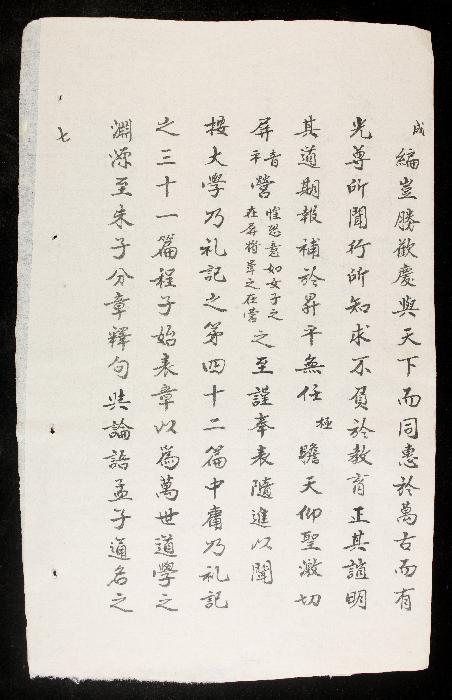 成編豈勝歡慶與天下而同惠於萬古而有
光尊所聞行所知求不負於教育正其誼明
其道期報補於昇平無任極瞻天仰聖激切
屏音營惶恐意如女子之在屏將軍之在營之至謹奉表隨進以聞
按大學乃礼記之第四十二篇中庸乃礼記
之三十一篇程子始表章以爲萬世道學之
淵源至朱子分章釋句與論語孟子通名之
七